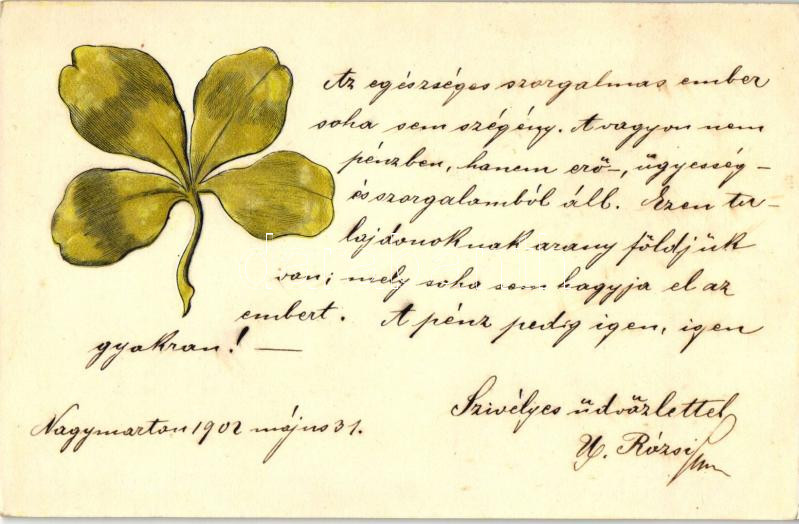 Az egészséges szorgalmas ember
soha sem szégény. A vagyon nem
pénzben, hanem erő-, ügyesség-
és szorgalomból áll. Ezen tu-
lajdonoknak arany földjük
van; mely soha sem hagyja el az
embert. A pénz pedig igen, igen
gyakran! —
Szivélyes üdvözlettel
Nagymarton 1902 május 31.
Rózsi